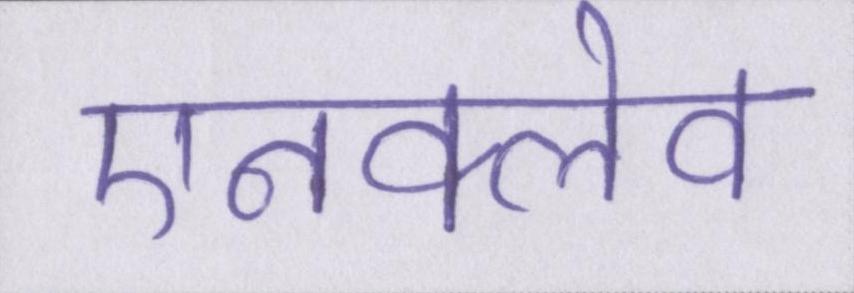 एनक्लेव